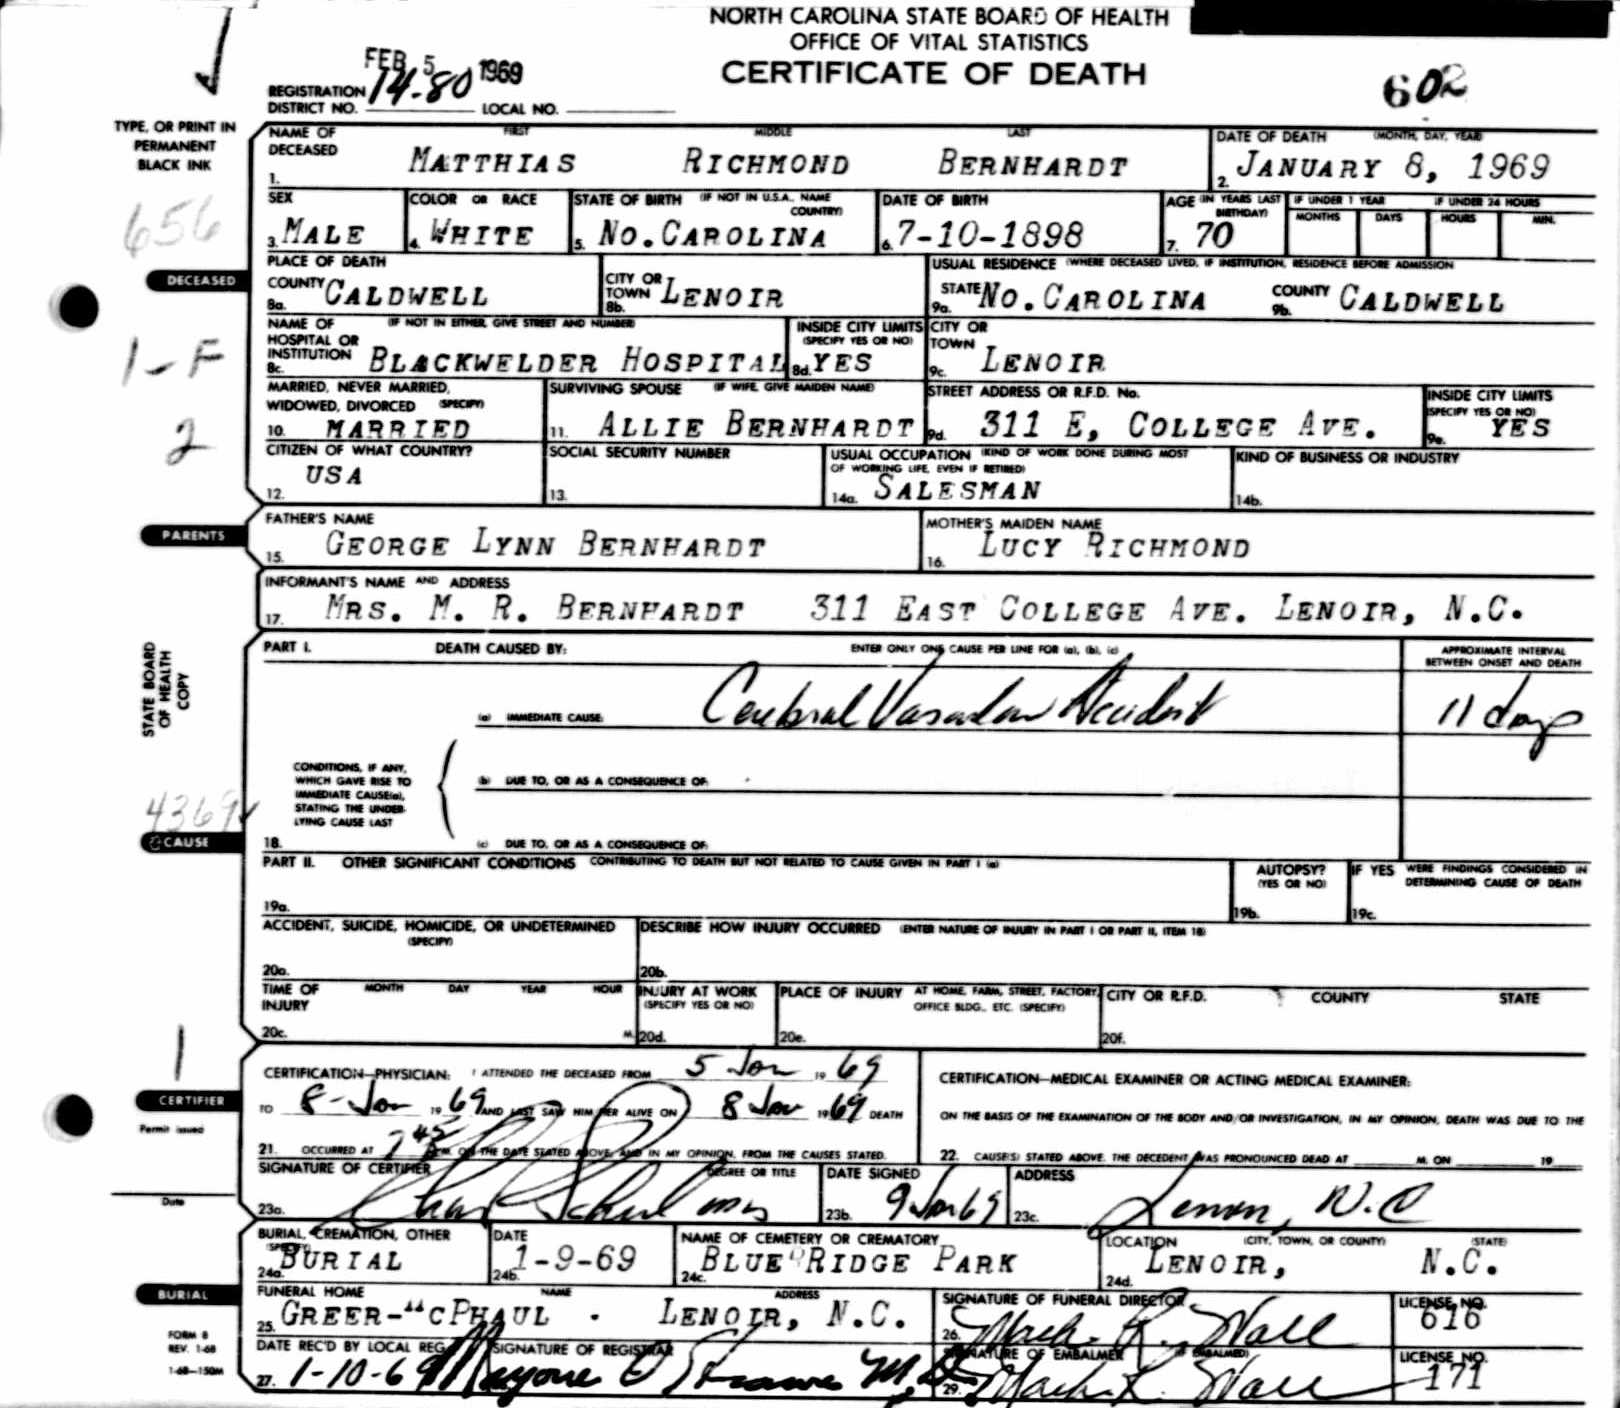 NORTH CAROLINA STATE BOARD OF HEALTH
OFFICE OF VITAL STATISTICS
CERTIFICATE OF DEATH
FEB 5 1969
602
REGISTRATION DISTRICT NO. 14-80 LOCAL NO.
TYPE, OR PRINT IN
PERMANENT
BLACK INK
NAME OF DECEASED FIRST MIDDLE LAST DATE OF DEATH (MONTH, DAY, YEAR)
1. MATTHIAS RICHMOND BERNHARDT 2. JANUARY 8, 1969
656
SEX COLOR OR RACE STATE OF BIRTH (IF NOT IN U.S.A., NAME COUNTRY) DATE OF BIRTH AGE (IN YEARS LAST BIRTHDAY) IF UNDER 1 YEAR IF UNDER 24 HOURS
MONTHS DAYS HOURS MIN.
3. MALE 4. WHITE 5. NO. CAROLINA 6. 7-10-1898 7. 70
DECEASED
PLACE OF DEATH USUAL RESIDENCE (WHERE DECEASED LIVED, IF INSTITUTION, RESIDENCE BEFORE ADMISSION
COUNTY CALDWELL CITY OR TOWN LENOIR STATE NO. CAROLINA COUNTY CALDWELL
8a. 8b. 9a. 9b.
NAME OF HOSPITAL OR INSTITUTION (IF NOT IN EITHER, GIVE STREET AND NUMBER) INSIDE CITY LIMITS (SPECIFY YES OR NO) CITY OR TOWN
8c. BLACKWELDER HOSPITAL 8d. YES 9c. LENOIR
1-F
MARRIED, NEVER MARRIED, WIDOWED, DIVORCED (SPECIFY) SURVIVING SPOUSE (IF WIFE, GIVE MAIDEN NAME) STREET ADDRESS OR R.F.D. No. INSIDE CITY LIMITS (SPECIFY YES OR NO)
10. MARRIED 11. ALLIE BERNHARDT 9d. 311 E, COLLEGE AVE. 9e. YES
2
CITIZEN OF WHAT COUNTRY? SOCIAL SECURITY NUMBER USUAL OCCUPATION (KIND OF WORK DONE DURING MOST OF WORKING LIFE, EVEN IF RETIRED) KIND OF BUSINESS OR INDUSTRY
12. USA 13. 14a. SALESMAN 14b.
PARENTS
FATHER'S NAME MOTHER'S MAIDEN NAME
15. GEORGE LYNN BERNHARDT 16. LUCY RICHMOND
INFORMANT'S NAME AND ADDRESS
17. MRS. M. R. BERNHARDT 311 EAST COLLEGE AVE. LENOIR, N.C.
STATE BOARD
OF HEALTH
COPY
PART I. DEATH CAUSED BY: ENTER ONLY ONE CAUSE PER LINE FOR (a), (b), (c) APPROXIMATE INTERVAL BETWEEN ONSET AND DEATH
(a) IMMEDIATE CAUSE: Cerebral Vascular Accident 11 days
CONDITIONS, IF ANY,
WHICH GAVE RISE TO
IMMEDIATE CAUSE(a),
STATING THE UNDER-
LYING CAUSE LAST
(b) DUE TO, OR AS A CONSEQUENCE OF:
4369
CAUSE
18. (c) DUE TO, OR AS A CONSEQUENCE OF:
PART II. OTHER SIGNIFICANT CONDITIONS CONTRIBUTING TO DEATH BUT NOT RELATED TO CAUSE GIVEN IN PART I (a) AUTOPSY? (YES OR NO) IF YES WERE FINDINGS CONSIDERED IN DETERMINING CAUSE OF DEATH
19a. 19b. 19c.
ACCIDENT, SUICIDE, HOMICIDE, OR UNDETERMINED (SPECIFY) DESCRIBE HOW INJURY OCCURRED (ENTER NATURE OF INJURY IN PART I OR PART II, ITEM 18)
20a. 20b.
TIME OF INJURY MONTH DAY YEAR HOUR INJURY AT WORK (SPECIFY YES OR NO) PLACE OF INJURY AT HOME, FARM, STREET, FACTORY, OFFICE BLDG., ETC. (SPECIFY) CITY OR R.F.D. COUNTY STATE
20c. M. 20d. 20e. 20f.
1
CERTIFIER
Permit issued
Date
CERTIFICATION—PHYSICIAN: I ATTENDED THE DECEASED FROM 5 Jan 19 69
TO 8-Jan 19 69 AND LAST SAW HIM/HER ALIVE ON 8 Jan 1969 DEATH
21. OCCURRED AT 7 45 M. ON THE DATE STATED ABOVE, AND IN MY OPINION, FROM THE CAUSES STATED.
CERTIFICATION—MEDICAL EXAMINER OR ACTING MEDICAL EXAMINER:
ON THE BASIS OF THE EXAMINATION OF THE BODY AND/OR INVESTIGATION, IN MY OPINION, DEATH WAS DUE TO THE
22. CAUSE(S) STATED ABOVE. THE DECEDENT WAS PRONOUNCED DEAD AT M. ON 19
SIGNATURE OF CERTIFIER DEGREE OR TITLE DATE SIGNED ADDRESS
23a. 23b. 9 Jan 69 23c. Lenoir, N.C
BURIAL, CREMATION, OTHER (SPECIFY) DATE NAME OF CEMETERY OR CREMATORY LOCATION (CITY, TOWN, OR COUNTY) (STATE)
24a. BURIAL 24b. 1-9-69 24c. BLUE RIDGE PARK 24d. LENOIR, N.C.
BURIAL
FUNERAL HOME NAME ADDRESS SIGNATURE OF FUNERAL DIRECTOR LICENSE NO.
25. GREER-McPHAUL . LENOIR, N.C. 26. Mark R. Wall 616
FORM 8
REV. 1-68
1-68—150M
DATE REC'D BY LOCAL REG. SIGNATURE OF REGISTRAR SIGNATURE OF EMBALMER (IF EMBALMED) LICENSE NO.
27. 1-10-69 M.D. 29. Mark R. Wall 171